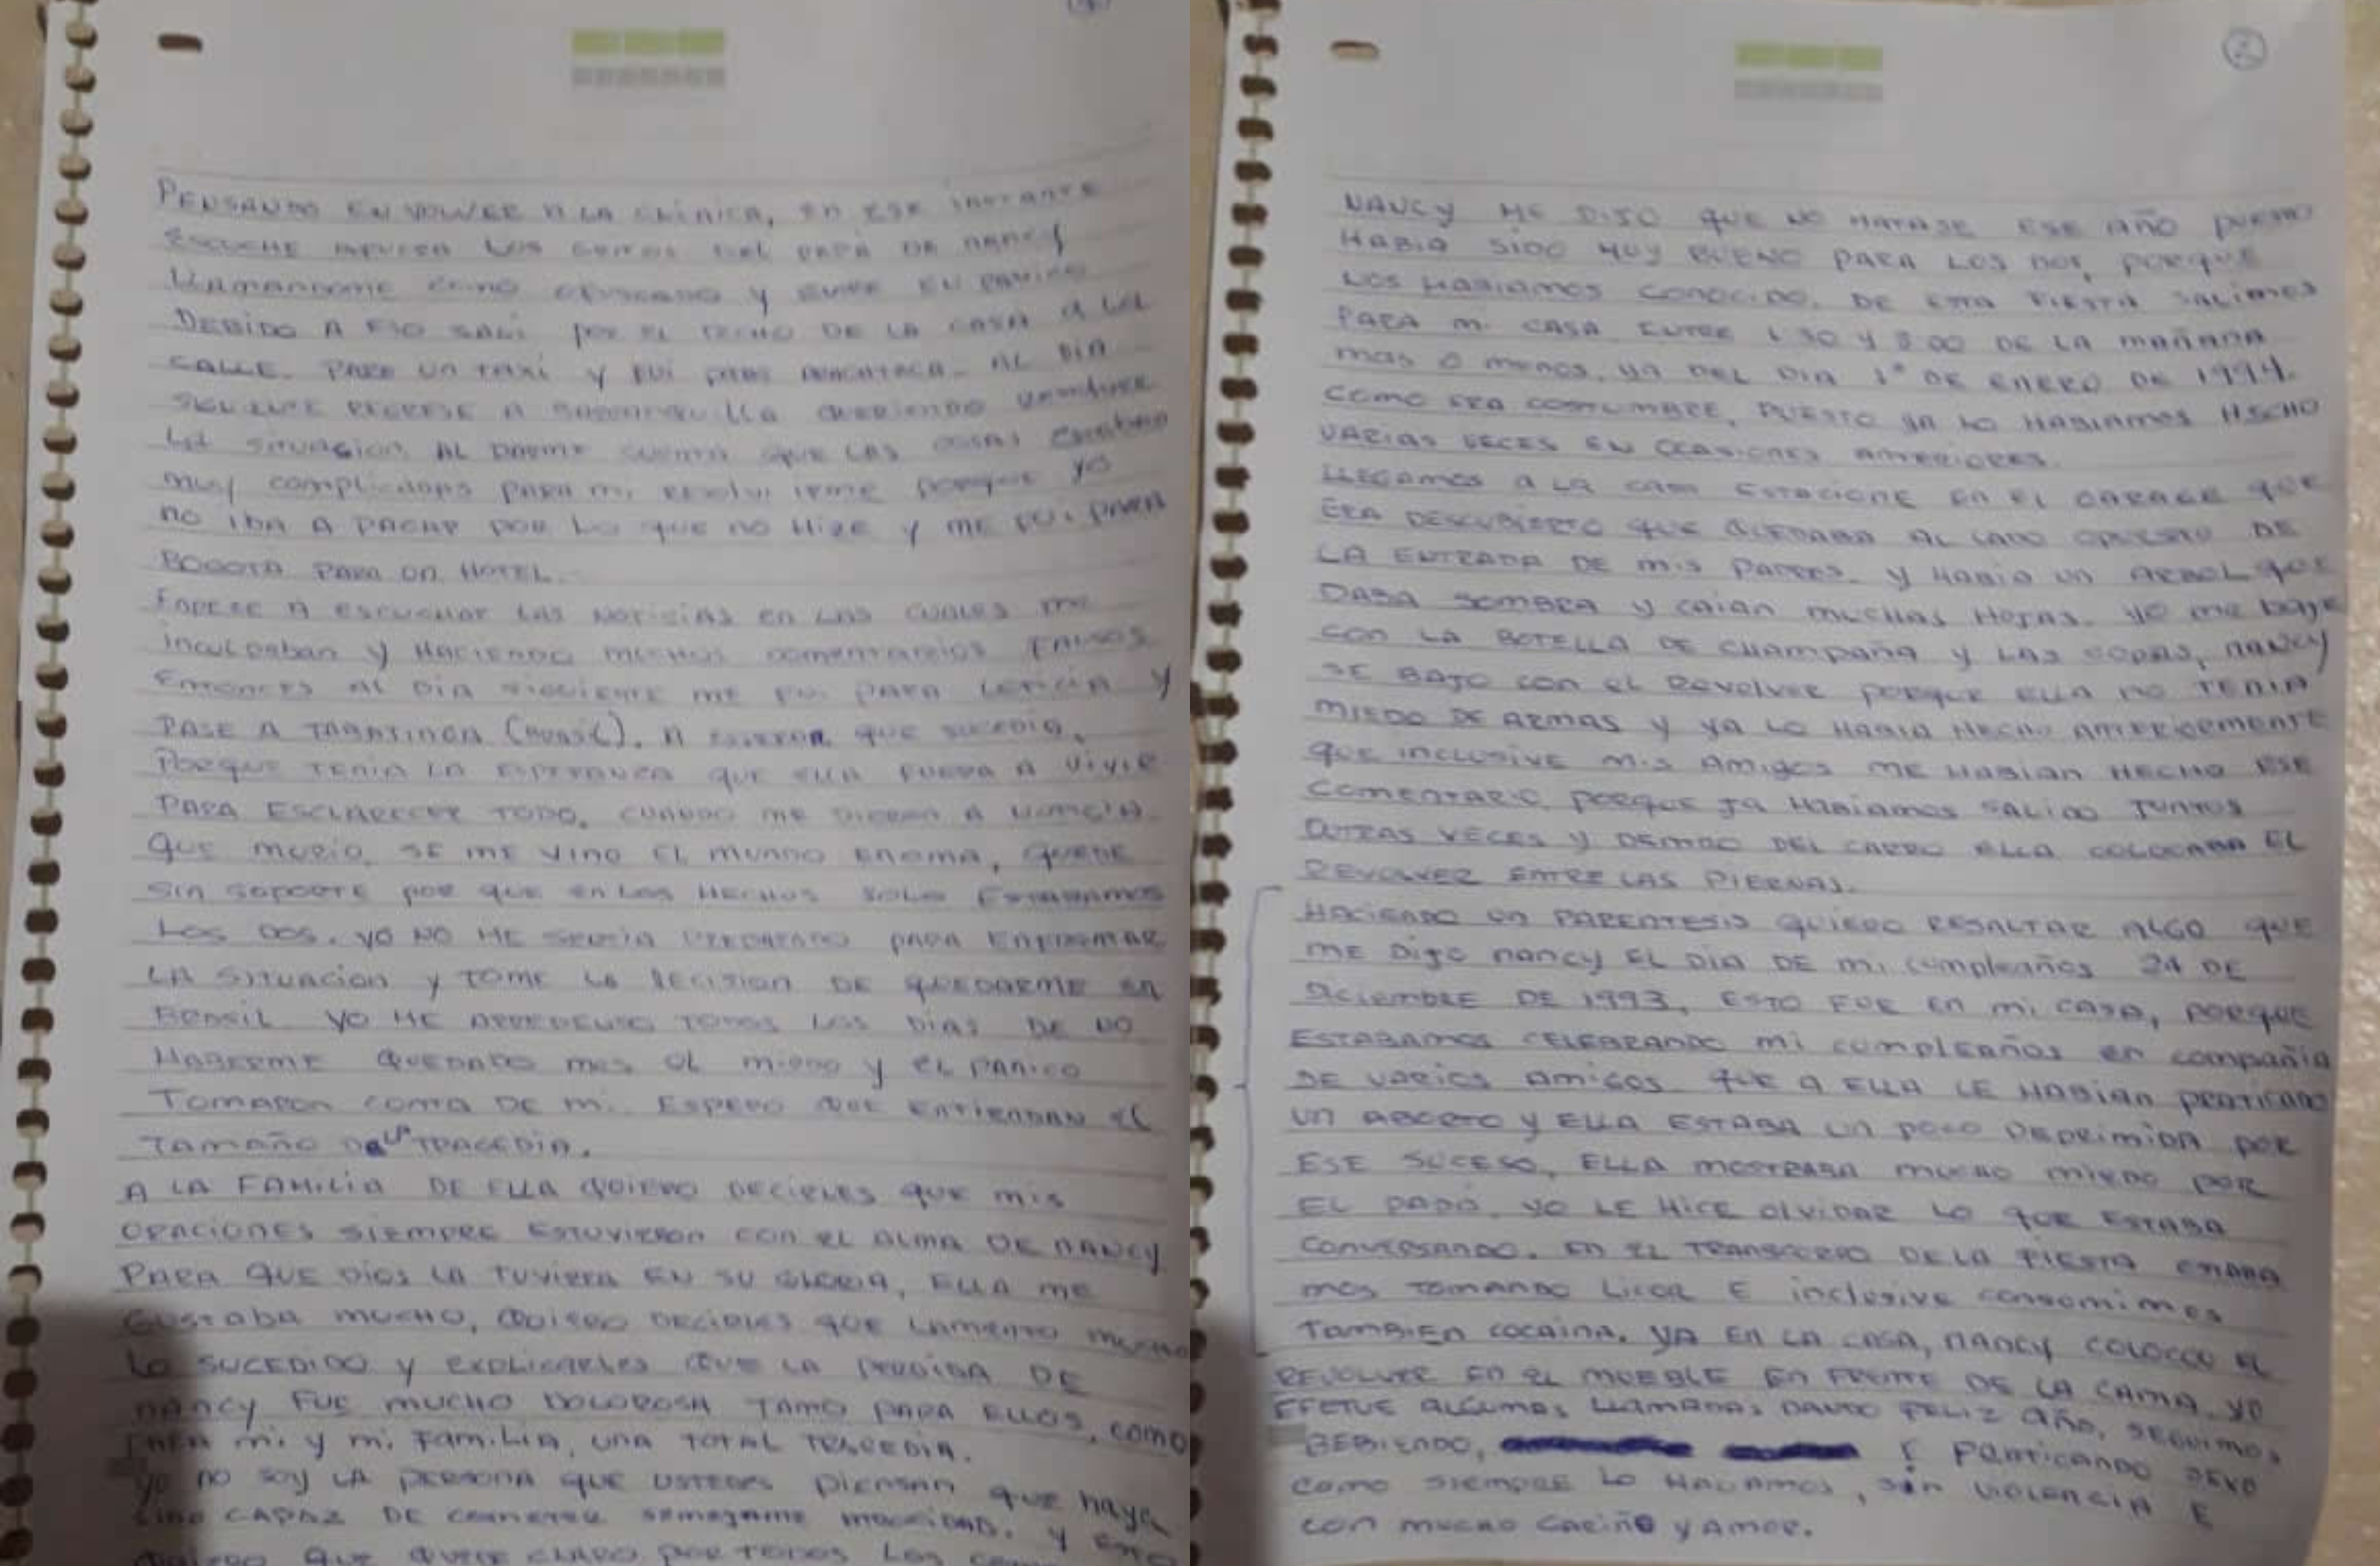 PENSANDO EN VOLVER A LA CLINICA, EN ESE INSTANTE
ESCUCHE LOS GRITOS DEL PAPÁ DE NANCY
LLAMANDOME COMO Y ENTRE EN PANICO
DEBIDO A ESO SALI POR EL TECHO DE LA CASA A LA
CALLE. PARE UN TAXI Y FUI PARA ARACATACA. AL DIA
SIGUIENTE REGRESE A BARRANQUILLA QUERIENDO
LA SITUACION, AL DARME CUENTA QUE LAS COSAS ESTABAN
MUY COMPLICADAS PARA MI RESOLVI IRME PORQUE YO
NO IBA A PAGAR POR LO QUE NO HIZE Y ME FUI PARA
BOGOTA PARA UN HOTEL.
EMPECE A ESCUCHAR LAS NOTICIAS EN LAS CUALES ME
INCULPABAN Y HACIENDO MUCHOS COMENTARIOS FALSOS
ENTONCES AL DIA SIGUIENTE ME FUI PARA LETICIA Y
PASE A TABATINGA (BRASIL). A ESPERAR QUE SUCEDIA,
PORQUE TENIA LA ESPERANZA QUE ELLA FUERA A VIVIR
PARA ESCLARECER TODO, CUANDO ME DIERON LA NOTICIA
QUE MURIO, SE ME VINO EL MUNDO ENCIMA, QUEDE
SIN SOPORTE POR QUE EN LOS HECHOS SOLO ESTABAMOS
LOS DOS. YO NO ME SENTIA PREPARADO PARA ENFRENTAR
LA SITUACION Y TOME LA DECISION DE QUEDARME EN
BRASIL. YO ME ARREPIENTO TODOS LOS DIAS DE NO
HABERME QUEDADO MAS EL MIEDO Y EL PANICO
TOMARON CONTA DE MI. ESPERO QUE ENTIENDAN EL
TAMAÑO DE LA TRAGEDIA.
A LA FAMILIA DE ELLA QUIERO DECIRLES QUE MIS
ORACIONES SIEMPRE ESTUVIERON CON EL ALMA DE NANCY
PARA QUE DIOS LA TUVIERA EN SU GLORIA, ELLA ME
GUSTABA MUCHO, QUIERO DECIRLES QUE LAMENTO MUCHO
LO SUCEDIDO Y EXPLICARLES QUE LA PERDIDA DE
NANCY FUE MUCHO DOLOROSA TANTO PARA ELLOS, COMO
PARA MI Y MI FAMILIA, UNA TOTAL TRAGEDIA.
YO NO SOY LA PERSONA QUE USTEDES PIENSAN QUE HAYA
SIDO CAPAZ DE COMETER SEMEJANTE. Y ESTO
QUIERO QUE QUEDE CLARO POR TODOS LOS
2
NANCY ME DIJO QUE NO MATASE ESE AÑO PUESTO
HABIA SIDO MUY BUENO PARA LOS DOS, PORQUE
NOS HABIAMOS CONOCIDO. DE ESTA FIESTA SALIMOS
PARA MI CASA ENTRE Y DE LA MAÑANA
MAS O MENOS, YA DEL DIA 1º DE ENERO DE 1994.
COMO ERA COSTUMBRE, PUESTO YA LO HABIAMOS HECHO
VARIAS VECES EN OCASIONES ANTERIORES.
LLEGAMOS A LA CASA ESTACIONE EN EL GARAGE QUE
ERA DESCUBIERTO QUE QUEDABA AL LADO OPUESTO DE
LA ENTRADA DE MIS PADRES, Y HABIA UN ARBOL QUE
DABA SOMBRA Y CAIAN MUCHAS HOJAS. YO ME BAJE
CON LA BOTELLA DE CHAMPAÑA Y LAS SODAS, NANCY
SE BAJO CON EL REVOLVER PORQUE ELLA NO TENIA
MIEDO DE ARMAS Y YA LO HABIA HECHO ANTERIORMENTE
QUE INCLUSIVE MIS AMIGOS ME HABIAN HECHO ESE
COMENTARIO, PORQUE YA HABIAMOS SALIDO JUNTOS
OUTRAS VECES Y DENTRO DEL CARRO ELLA COLOCABA EL
REVOLVER ENTRE LAS PIERNAS.
HACIENDO UN PARENTESIS QUIERO RESALTAR ALGO QUE
ME DIJO NANCY EL DIA DE MI CUMPLEAÑOS 24 DE
DICIEMBRE DE 1993, ESTO FUE EN MI CASA, PORQUE
ESTABAMOS CELEBRANDO MI CUMPLEAÑOS EN COMPAÑIA
DE VARIOS AMIGOS. QUE A ELLA LE HABIAN PRATICADO
UN ABORTO Y ELLA ESTABA UN POCO DEPRIMIDA POR
ESE SUCESO, ELLA MOSTRABA MUCHO MIEDO POR
EL PAPÁ, YO LE HICE OLVIDAR LO QUE ESTABA
CONVERSANDO. EN EL TRANSCURSO DE LA FIESTA ESTABA
MOS TOMANDO LICOR E INCLUSIVE CONSUMIMOS
TAMBIEN COCAINA. YA EN LA CASA, NANCY COLOCO EL
REVOLVER EN EL MUEBLE EN FRENTE DE LA CAMA, YO
EFETUE ALGUMAS LLAMADAS DANDO FELIZ AÑO, SEGUIMOS
BEBIENDO, PRATICANDO SEXO
COMO SIEMPRE LO HACIAMOS, SIN VIOLENCIA E
CON MUCHO CARIÑO Y AMOR.